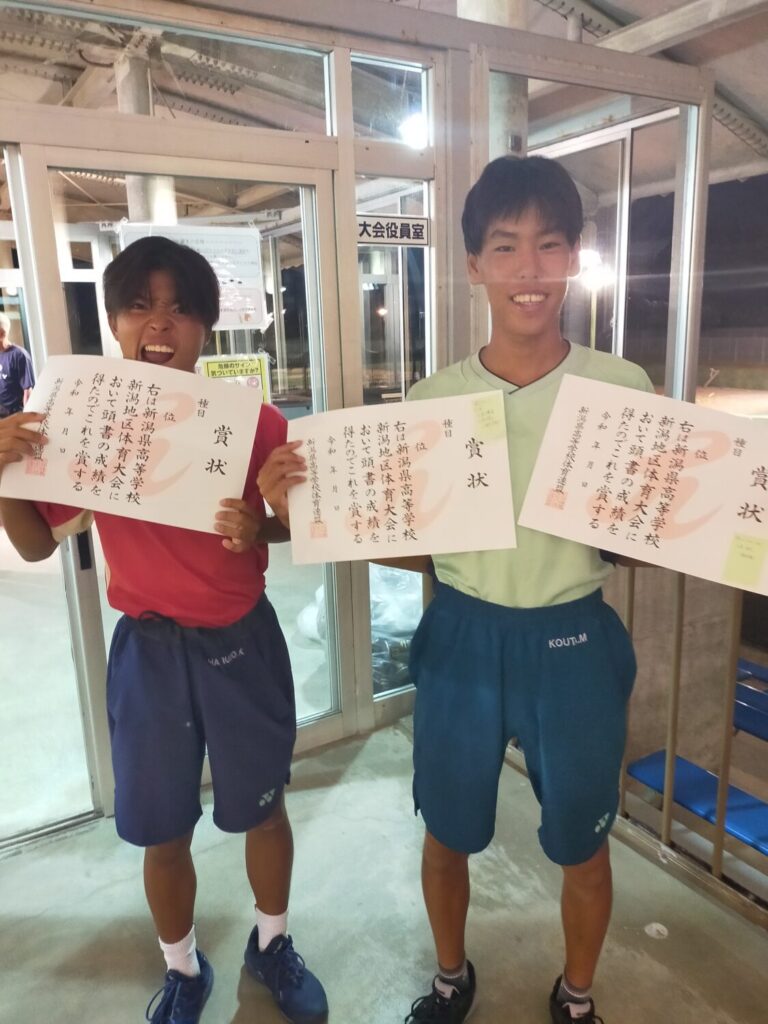 大会役員室
危険のサイン
気づいていますか?
賞状
種目
位
右は新潟県高等学校
新潟地区体育大会に
おいて頭書の成績を
得たのでこれを賞する
令和 年 月 日
新潟県高等学校体育連盟
賞状
種目
位
右は新潟県高等学校
新潟地区体育大会に
おいて頭書の成績を
得たのでこれを賞する
令和 年 月 日
新潟県高等学校体育連盟
賞状
種目
位
右は新潟県高等学校
新潟地区体育大会に
おいて頭書の成績を
得たのでこれを賞する
令和 年 月 日
新潟県高等学校体育連盟
KOUTI.M